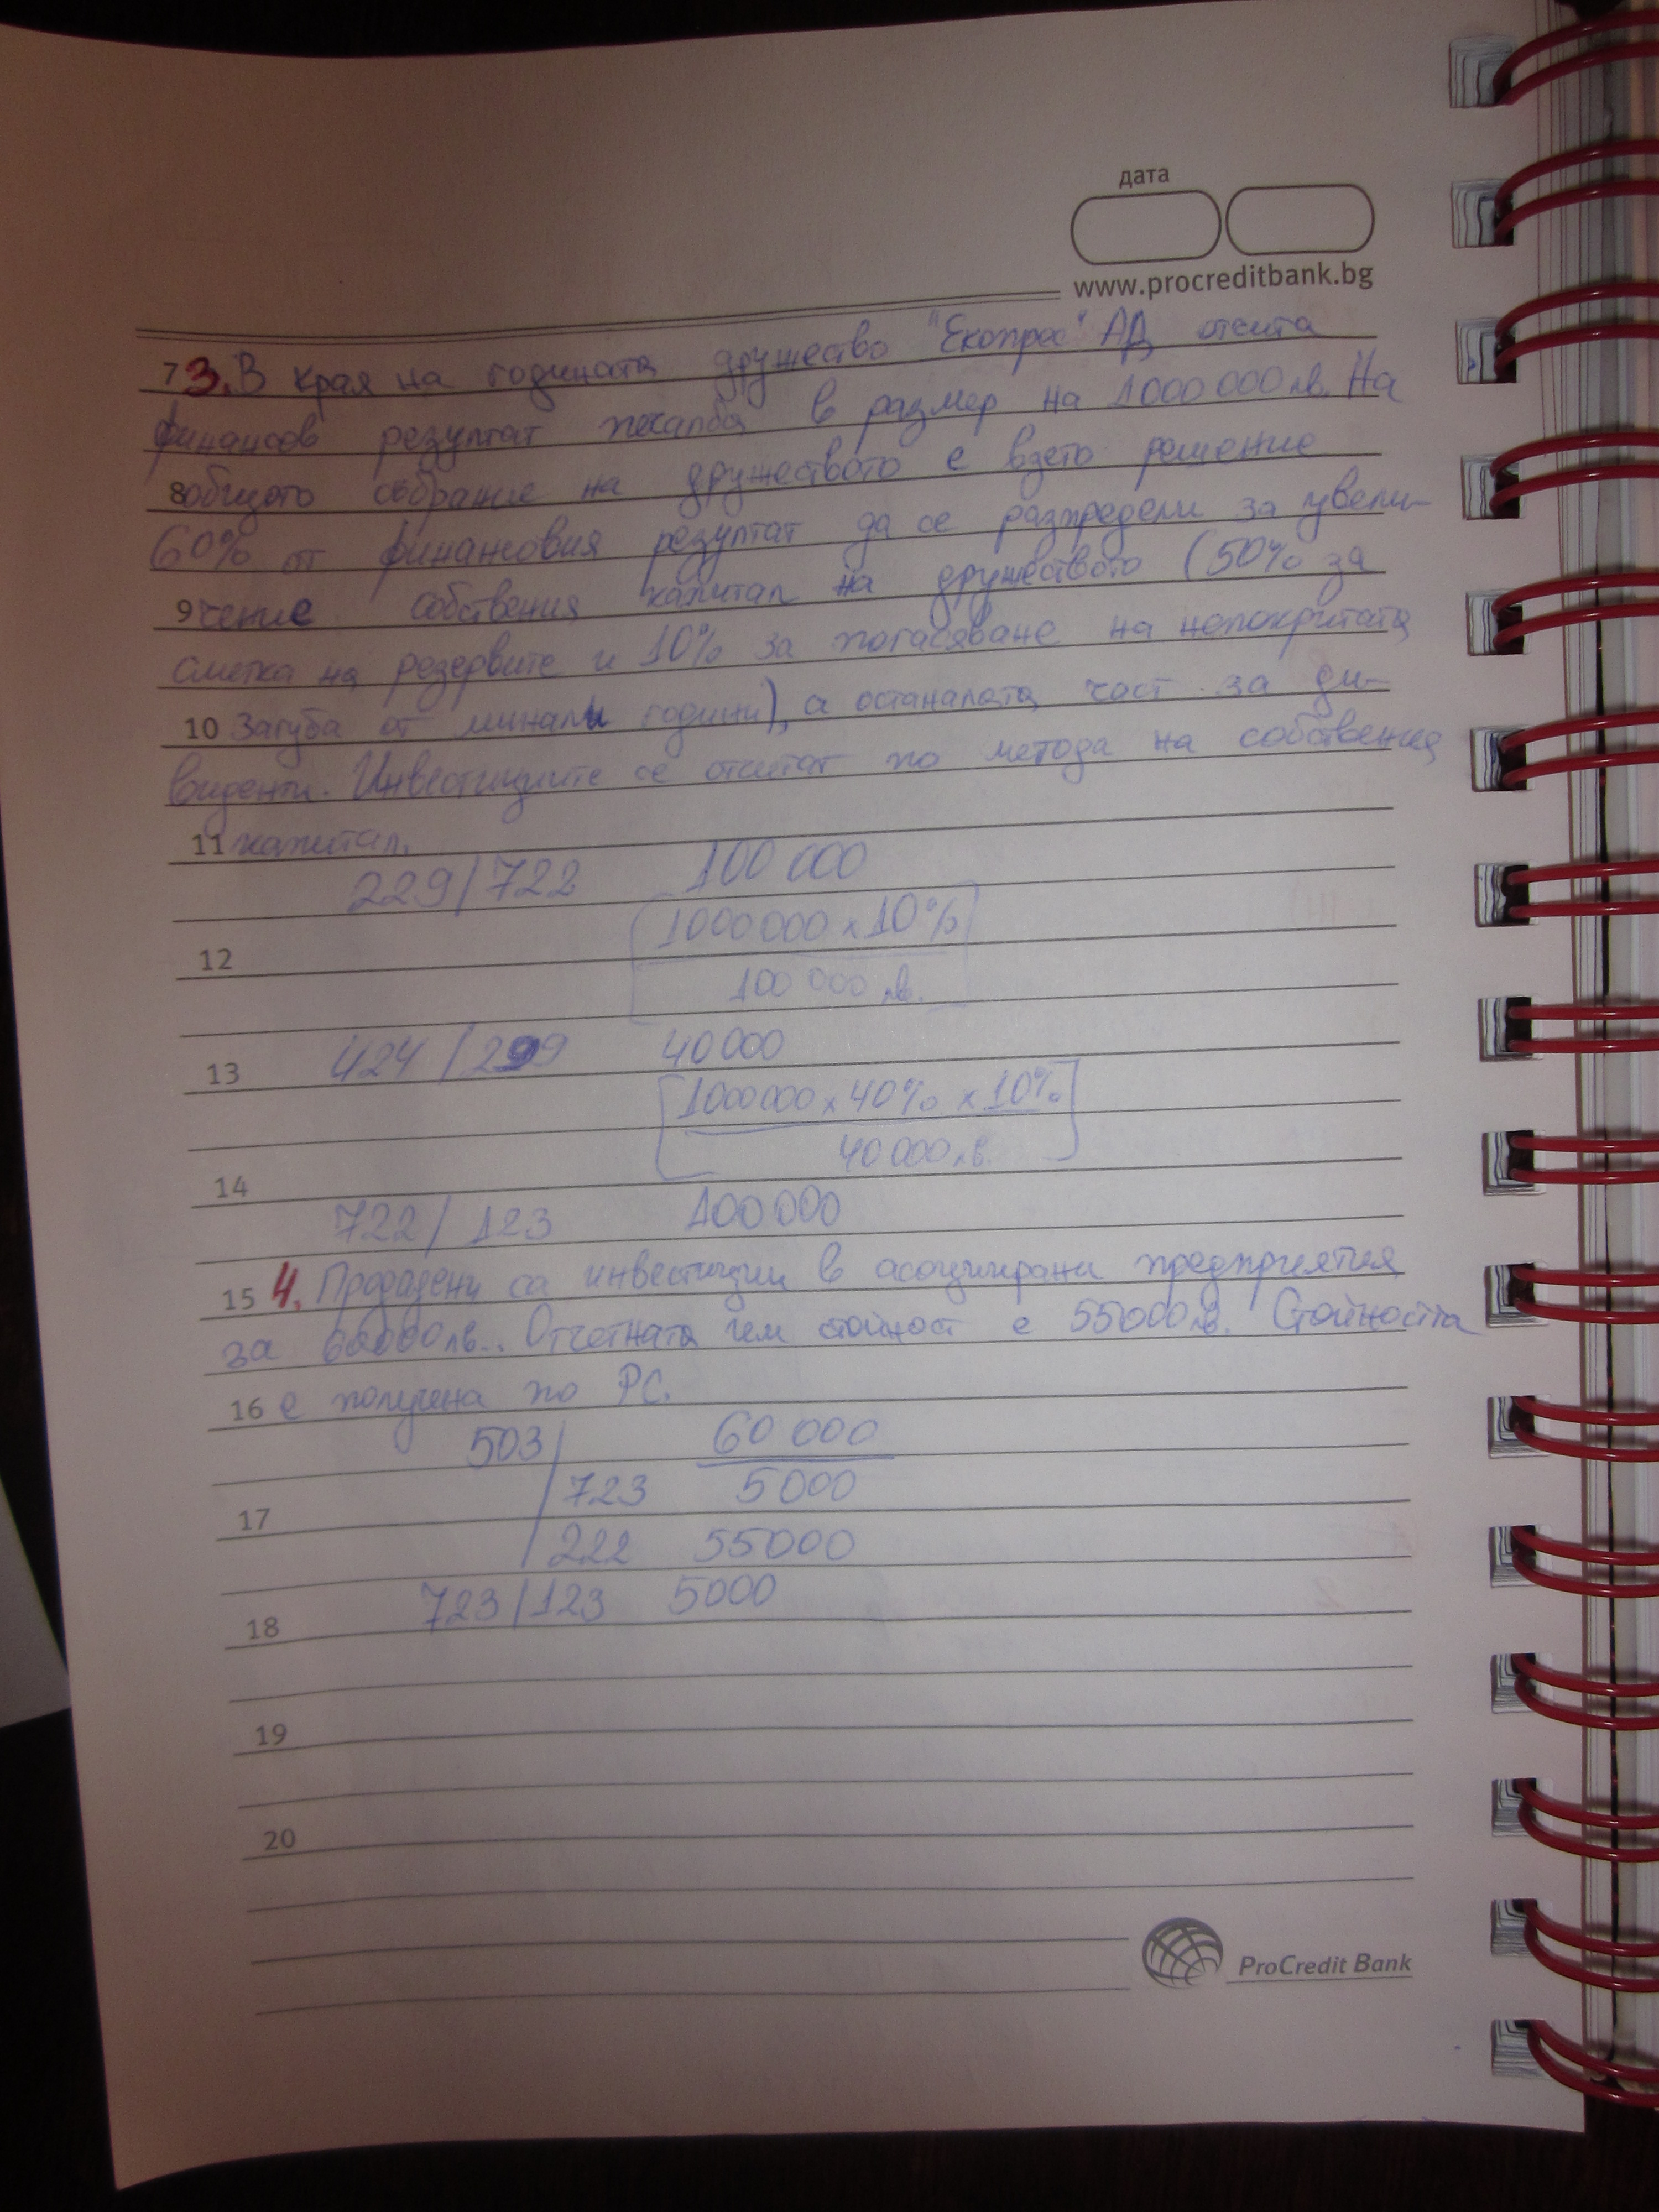 дата
www.procreditbank.bg
7 3. В края на годината дружество "Екопрес" АД отчита
финансов резултат печалба в размер на 1000 000 лв. На
8 общото събрание на дружеството е взето решение
60% от финансовия резултат да се разпредели за увели-
9 чение собствения капитал на дружеството (50% за
сметка на резервите и 10% за погасяване на непокритата
10 загуба от минали години), а останалата част за ди-
виденти. Инвестициите се отчитат по метода на собствения
11 капитал.
229/722 100 000
1000 000 x 10%
12
100 000 лв.
424 / 299 40 000
13
1000 000 x 40% x 10%
40 000 лв.
14
722 / 123 100 000
15 4. Продадени са инвестиции в асоциирани предприятия
за 60000 лв.. Отчетната им стойност е 55000 лв. Стойността
16 е получена по РС.
503/ 60 000
/ 723 5 000
17
/ 222 55000
723/123 5000
18
19
20
ProCredit Bank